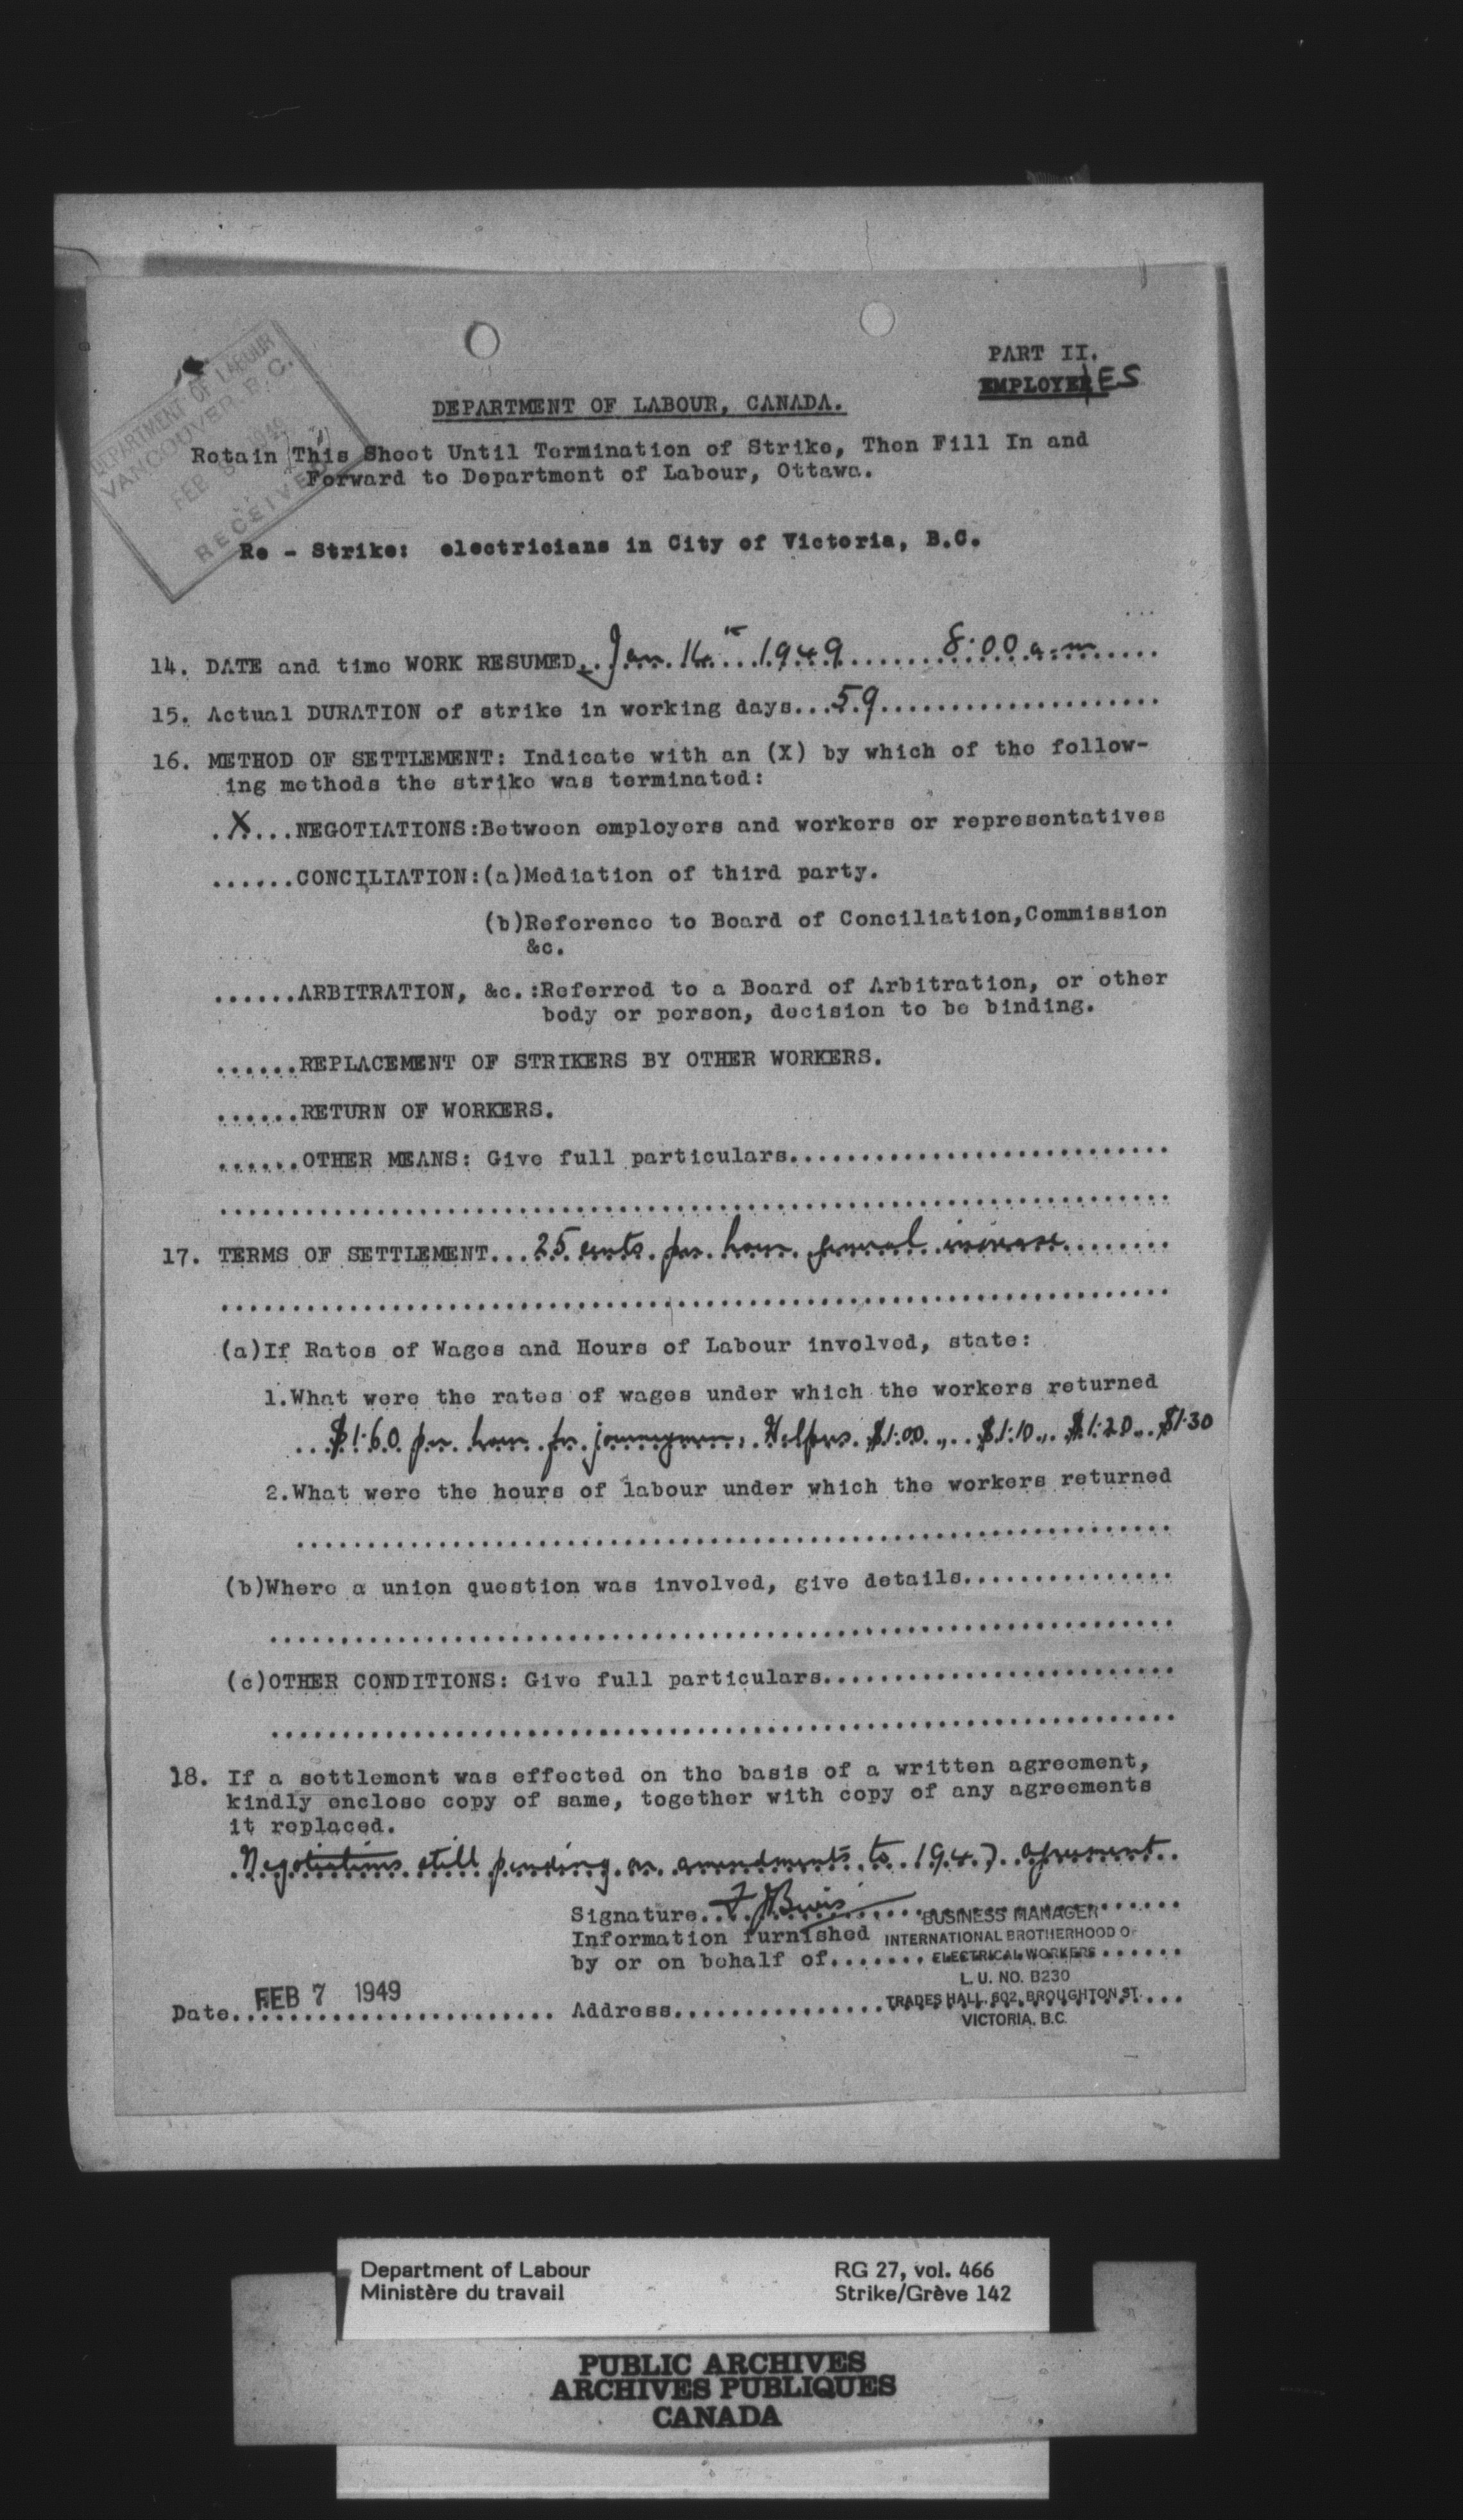 PART II.
EMPLOYER ES
DEPARTMENT OF LABOUR
VANCOUVER, B.C.
FEB 1949
RECEIVED
DEPARTMENT OF LABOUR, CANADA.
Retain This Sheet Until Termination of Strike, Then Fill In and
Forward to Department of Labour, Ottawa.
Re - Strike: electricians in City of Victoria, B.C.
14. DATE and time WORK RESUMED...Jan. 14th...1949.......8:00 a.m.....
15. Actual DURATION of strike in working days...59....................
16. METHOD OF SETTLEMENT: Indicate with an (X) by which of the follow-
ing methods the strike was terminated:
.X....NEGOTIATIONS:Between employers and workers or representatives
......CONCILIATION:(a)Mediation of third party.
(b)Reference to Board of Conciliation,Commission
&c.
......ARBITRATION, &c.:Referred to a Board of Arbitration, or other
body or person, decision to be binding.
......REPLACEMENT OF STRIKERS BY OTHER WORKERS.
......RETURN OF WORKERS.
......OTHER MEANS: Give full particulars...........................
17. TERMS OF SETTLEMENT...25 cents per hour general increase........
(a)If Rates of Wages and Hours of Labour involved, state:
1.What were the rates of wages under which the workers returned
...$1.60 per hour for journeymen. Helpers $1.00 .,.. $1.10.,.. $1.20... $1.30
2.What were the hours of labour under which the workers returned
(b)Where a union question was involved, give details...............
(c)OTHER CONDITIONS: Give full particulars.........................
18. If a settlement was effected on the basis of a written agreement,
kindly enclose copy of same, together with copy of any agreements
it replaced.
Negotiations still pending on amendments to 1947 agreement..
Signature..F J Bevis
BUSINESS MANAGER
Information furnished INTERNATIONAL BROTHERHOOD OF
by or on behalf of....... ELECTRICAL WORKERS
L. U. NO. B230
Date FEB 7 1949 Address............... TRADES HALL, 602, BROUGHTON ST.
VICTORIA, B.C.
Department of Labour RG 27, vol. 466
Ministère du travail Strike/Grève 142
PUBLIC ARCHIVES
ARCHIVES PUBLIQUES
CANADA